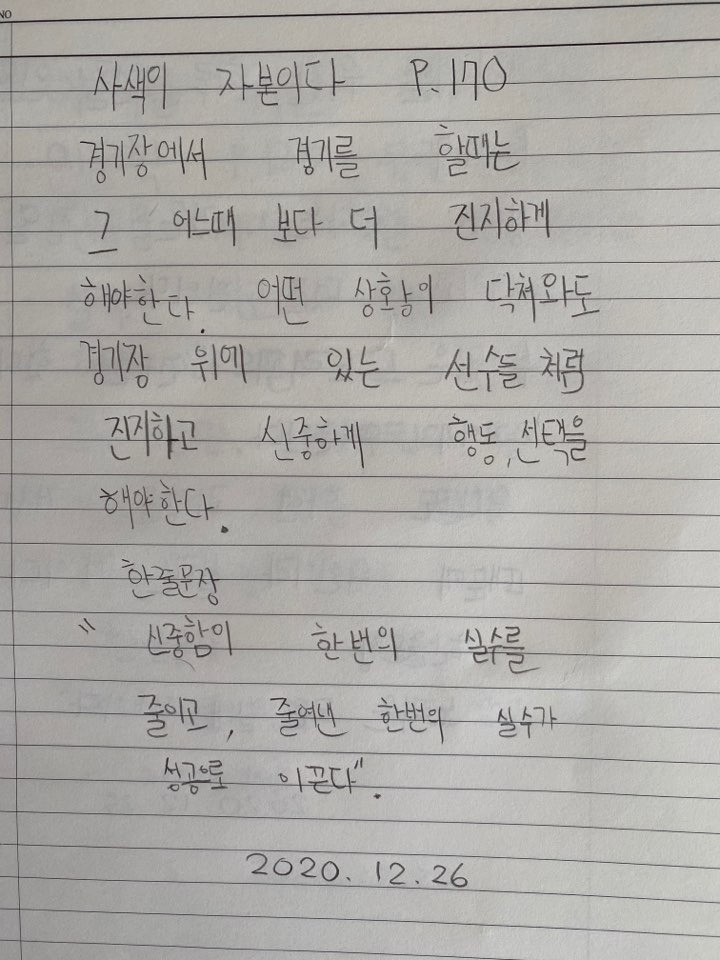 NO
사색이 자본이다 P.170
경기장에서 경기를 할때는
그 어느때 보다 더 진지하게
해야한다. 어떤 상황이 닥쳐와도
경기장 위에 있는 선수들 처럼
진지하고 신중하게 행동, 선택을
해야한다.
한줄문장
" 신중함이 한번의 실수를
줄이고, 줄여낸 한번의 실수가
성공으로 이끈다".
2020.12.26